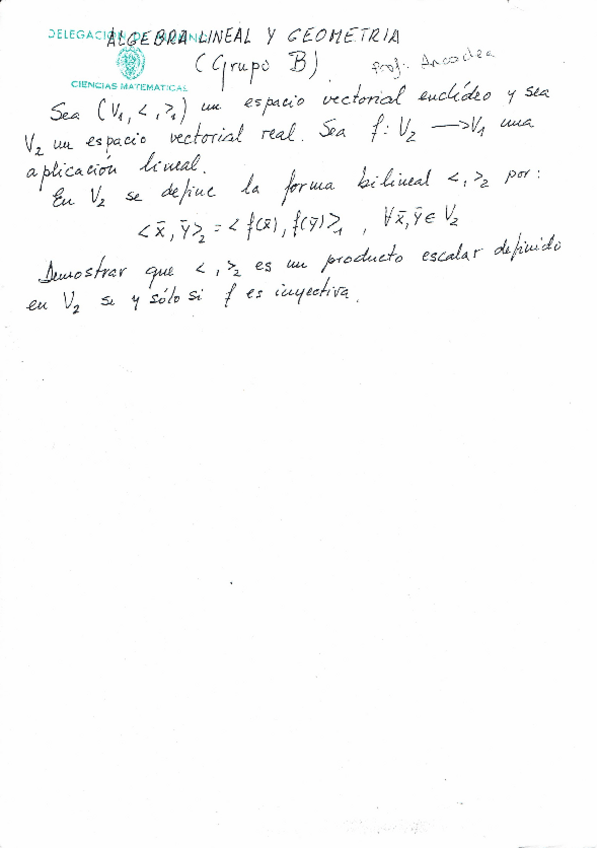 DELEGACI
ALGEBRA LINEAL Y GEOMETRIA
(Grupo B) Prof:
CIENCIAS MATEMATICAS
Sea (V₁, < , >₁) un espacio vectorial euclídeo y sea
V₂ un espacio vectorial real. Sea f: V₂ → V₁ una
aplicación lineal.
En V₂ se define la forma bilineal < , >₂ por:
< x̄, ȳ >₂ = < f(x̄), f(ȳ) >₁ , ∀ x̄, ȳ ∈ V₂
Demostrar que < , >₂ es un producto escalar definido
en V₂ si y sólo si f es inyectiva.